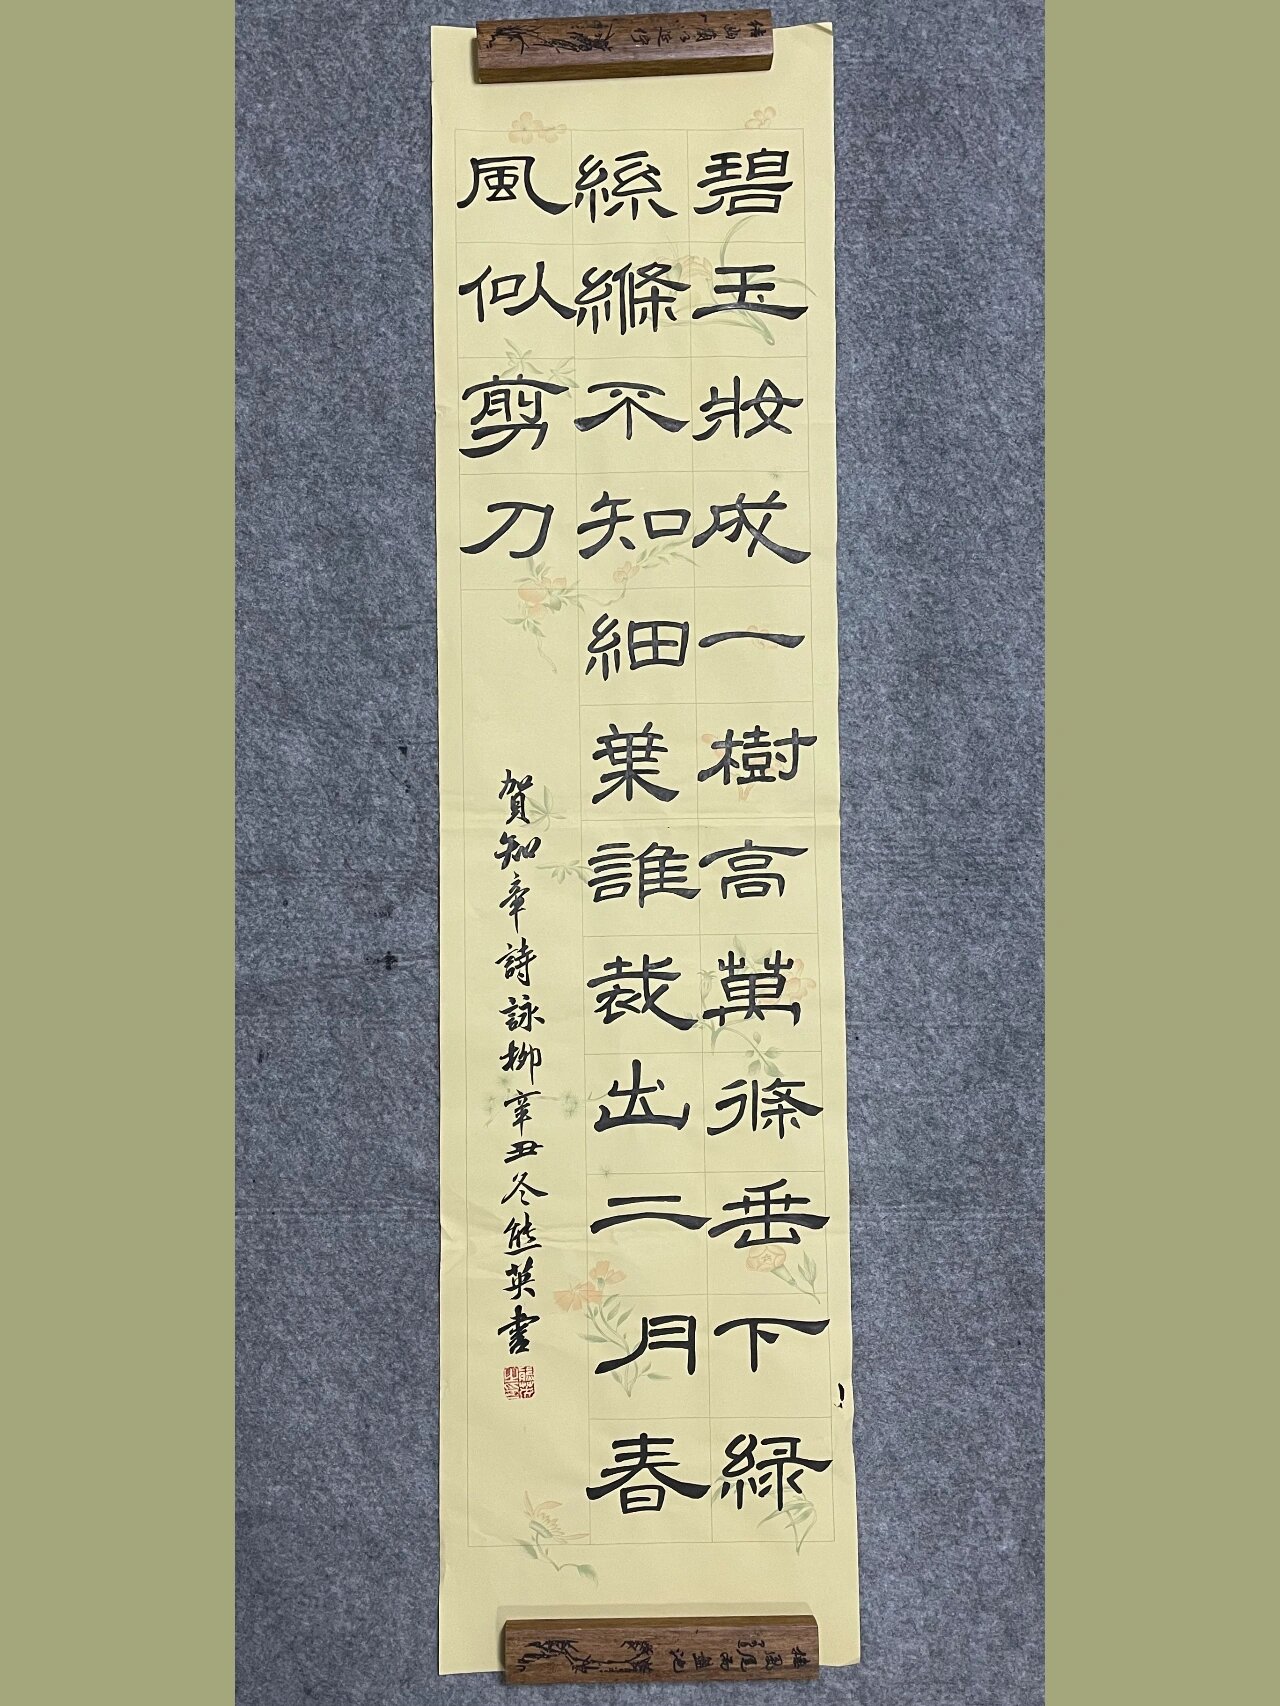 碧玉妝成一樹高萬條垂下綠
絲縧不知細葉誰裁出二月春
風似剪刀
賀知章詩詠柳辛丑冬熊英書